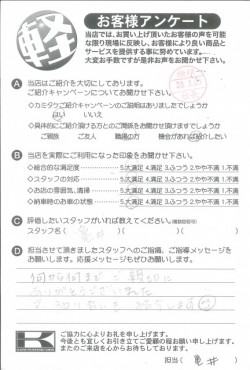 軽
お客様アンケート
当店では、お買い上げ頂いたお客様の声を可能
な限り現場に反映し、お客様により良い商品と
サービスを提供する事に努めています。
大変お手数ですが是非お声をお聞かせ下さい。
A 当店はご紹介を大切にしております。
ご紹介キャンペーンについてお聞かせ下さい。
◇カミタケご紹介キャンペーンのご説明はありましたでしょうか
はい いいえ
◇具体的にご紹介頂ける方とのご関係をお聞かせ頂けますでしょうか
ご親族 ご友人 職場の方 機会があればご紹介したい
B 当店を実際にご利用になった印象をお聞かせ下さい。
◇総合的な満足度 5.大満足 4.満足 3.ふつう 2.やや不満 1.不満
◇スタッフの対応 5.大満足 4.満足 3.ふつう 2.やや不満 1.不満
◇お店の雰囲気、清掃 5.大満足 4.満足 3.ふつう 2.やや不満 1.不満
◇納車時のお車の状態 5.大満足 4.満足 3.ふつう 2.やや不満 1.不満
C 評価したいスタッフがいれば教えてください。
スタッフ名 ( 亀井 )
D 担当させて頂きましたスタッフへのご指摘、ご指導メッセージを
お願いします。応援メッセージもぜひお願いします。
何から何まで 親切に
ありがとうございました
K
ご協力に心よりお礼を申し上げます。
今後とも宜しくお引き立てご愛顧の程お願い申し上げます。
またのご来店を心からお待ちしております。
担当 ( 亀井 )